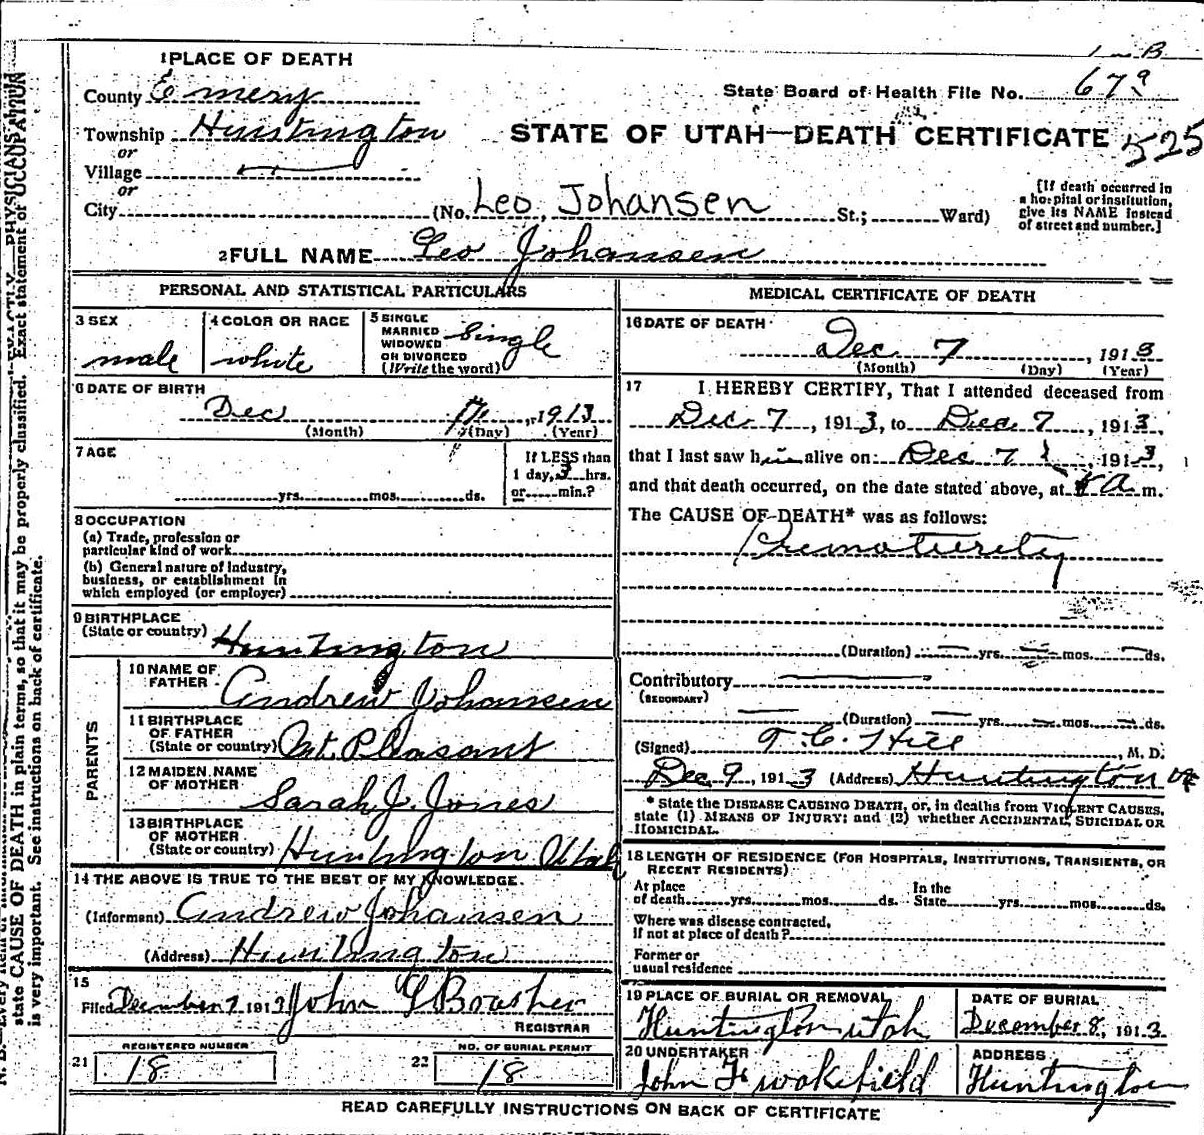 1 PLACE OF DEATH
County Emery
State Board of Health File No. 679
Township Huntington
STATE OF UTAH—DEATH CERTIFICATE 525
or
Village
or
City (No. Leo Johansen St.; Ward)
[If death occurred in a hospital or institution, give its NAME instead of street and number.]
2 FULL NAME Leo Johansen
PERSONAL AND STATISTICAL PARTICULARS
3 SEX
male
4 COLOR OR RACE
white
5 SINGLE
MARRIED
WIDOWED
OR DIVORCED
(Write the word)
Single
6 DATE OF BIRTH
Dec 7, 1913
(Month) (Day) (Year)
7 AGE
yrs. mos. ds.
If LESS than
1 day, 3 hrs.
or min.?
8 OCCUPATION
(a) Trade, profession or
particular kind of work
(b) General nature of industry,
business, or establishment in
which employed (or employer)
9 BIRTHPLACE
(State or country) Huntington
PARENTS
10 NAME OF
FATHER Andrew Johansen
11 BIRTHPLACE
OF FATHER
(State or country) Mt. Pleasant
12 MAIDEN NAME
OF MOTHER Sarah J. Jones
13 BIRTHPLACE
OF MOTHER
(State or country) Huntington Utah
14 THE ABOVE IS TRUE TO THE BEST OF MY KNOWLEDGE.
(Informant) Andrew Johansen
(Address) Huntington
15
Filed December 7 1913 John
REGISTRAR
21 REGISTERED NUMBER
18
22 NO. OF BURIAL PERMIT
18
MEDICAL CERTIFICATE OF DEATH
16 DATE OF DEATH
Dec 7, 1913
(Month) (Day) (Year)
17 I HEREBY CERTIFY, That I attended deceased from
Dec 7, 1913, to Dec 7, 1913,
that I last saw him alive on: Dec 7, 1913,
and that death occurred, on the date stated above, at a m.
The CAUSE OF DEATH* was as follows:
Prematurity
(Duration) yrs. mos. ds.
Contributory
(SECONDARY)
(Duration) yrs. mos. ds.
(Signed) T. C. Hill M. D.
Dec 9, 1913 (Address) Huntington Ut
* State the DISEASE CAUSING DEATH, or, in deaths from VIOLENT CAUSES,
state (1) MEANS OF INJURY; and (2) whether ACCIDENTAL, SUICIDAL OR
HOMICIDAL.
18 LENGTH OF RESIDENCE (FOR HOSPITALS, INSTITUTIONS, TRANSIENTS, OR
RECENT RESIDENTS)
At place
of death yrs. mos. ds.
In the
State yrs. mos. ds.
Where was disease contracted,
If not at place of death?
Former or
usual residence
19 PLACE OF BURIAL OR REMOVAL
Huntington Utah
DATE OF BURIAL
December 8, 1913
20 UNDERTAKER
John F Wakefield
ADDRESS
Huntington
READ CAREFULLY INSTRUCTIONS ON BACK OF CERTIFICATE
state CAUSE OF DEATH in plain terms, so that it may be properly classified. Exact statement of OCCUPATION
is very important. See instructions on back of certificate.